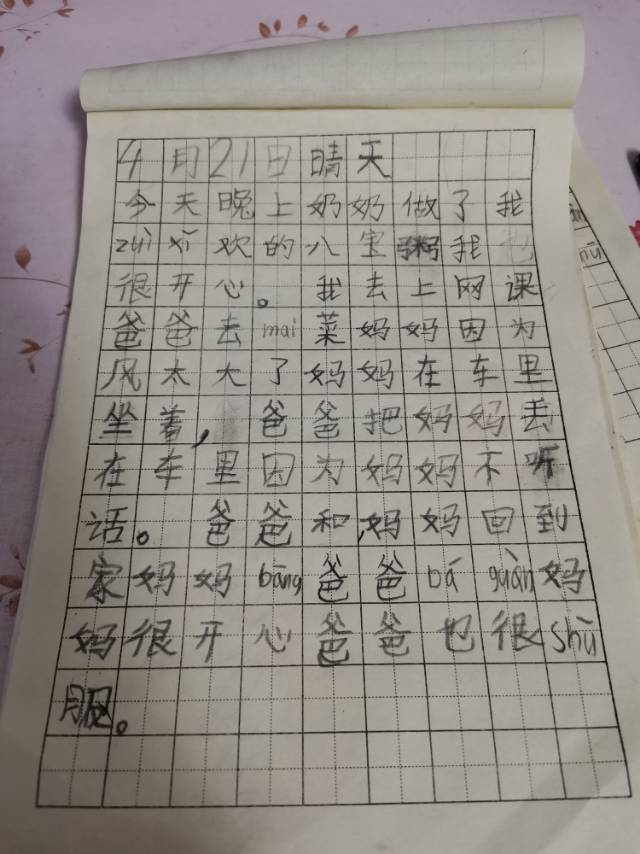 4月21日晴天
今天晚上奶奶做了我
zuì xǐ欢的八宝粥我
很开心。我去上网课
爸爸去mai菜妈妈因为
风太大了妈妈在车里
坐着，爸爸把妈妈丢
在车里因为妈妈不听
话。爸爸和妈妈回到
家妈妈bāng爸爸bá guàn妈
妈很开心爸爸也很shū
服。